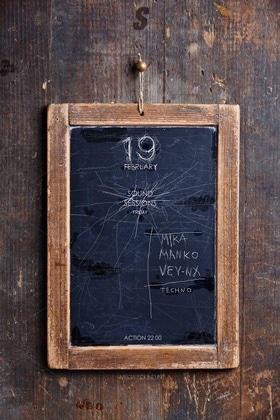 S
19
FEBRUARY
SOUND
SESSIONS
FRIDAY
MIKA
MANKO
VEY-NX
TECHNO
ACTION 22:00